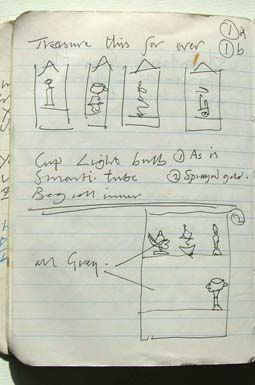 Treasure this for ever ①a
①b
Cup Light bulb ① As is
Smarti tube ② Sprayed gold.
Bog roll inner
②
All Grey.